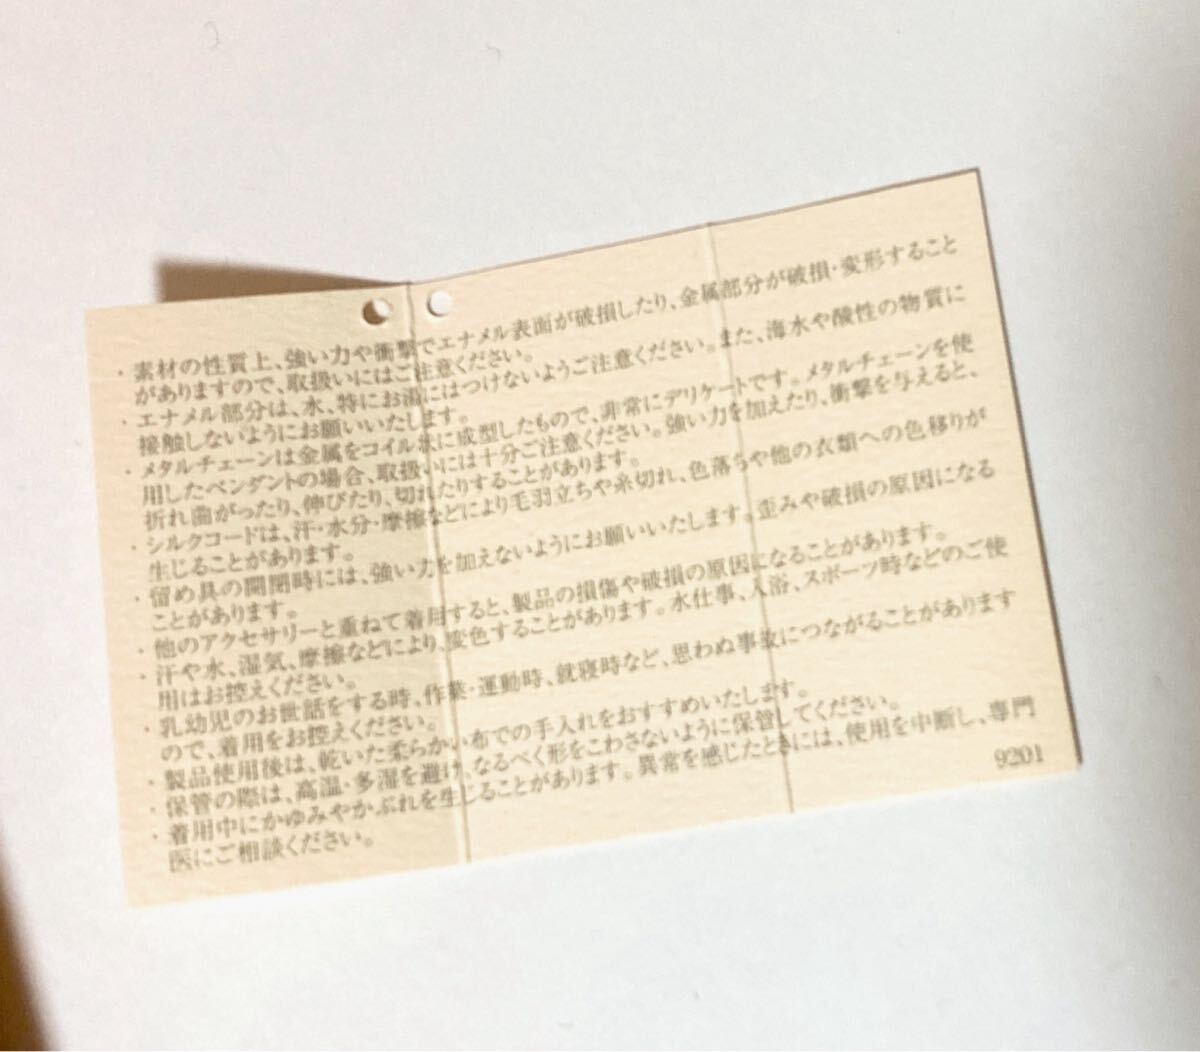 ・素材の性質上、強い力や衝撃でエナメル表面が破損したり、金属部分が破損・変形すること
がありますので、取扱いにはご注意ください。
・エナメル部分は、水、特にお湯にはつけないようご注意ください。また、海水や酸性の物質に
接触しないようにお願いいたします。
・メタルチェーンは金属をコイル状に成型したもので、非常にデリケートです。メタルチェーンを使
用したペンダントの場合、取扱いには十分ご注意ください。強い力を加えたり、衝撃を与えると、
折れ曲がったり、伸びたり、切れたりすることがあります。
・シルクコードは、汗・水分・摩擦などにより毛羽立ちや糸切れ、色落ちや他の衣類への色移りが
生じることがあります。
・留め具の開閉時には、強い力を加えないようにお願いいたします。歪みや破損の原因になる
ことがあります。
・他のアクセサリーと重ねて着用すると、製品の損傷や破損の原因になることがあります。
・汗や水、湿気、摩擦などにより、変色することがあります。水仕事、入浴、スポーツ時などのご使
用はお控えください。
・乳幼児のお世話をする時、作業・運動時、就寝時など、思わぬ事故につながることがあります
ので、着用をお控えください。
・製品使用後は、乾いた柔らかい布での手入れをおすすめいたします。
・保管の際は、高温・多湿を避け、なるべく形をこわさないように保管してください。
・着用中にかゆみやかぶれを生じることがあります。異常を感じたときには、使用を中断し、専門
医にご相談ください。
9201